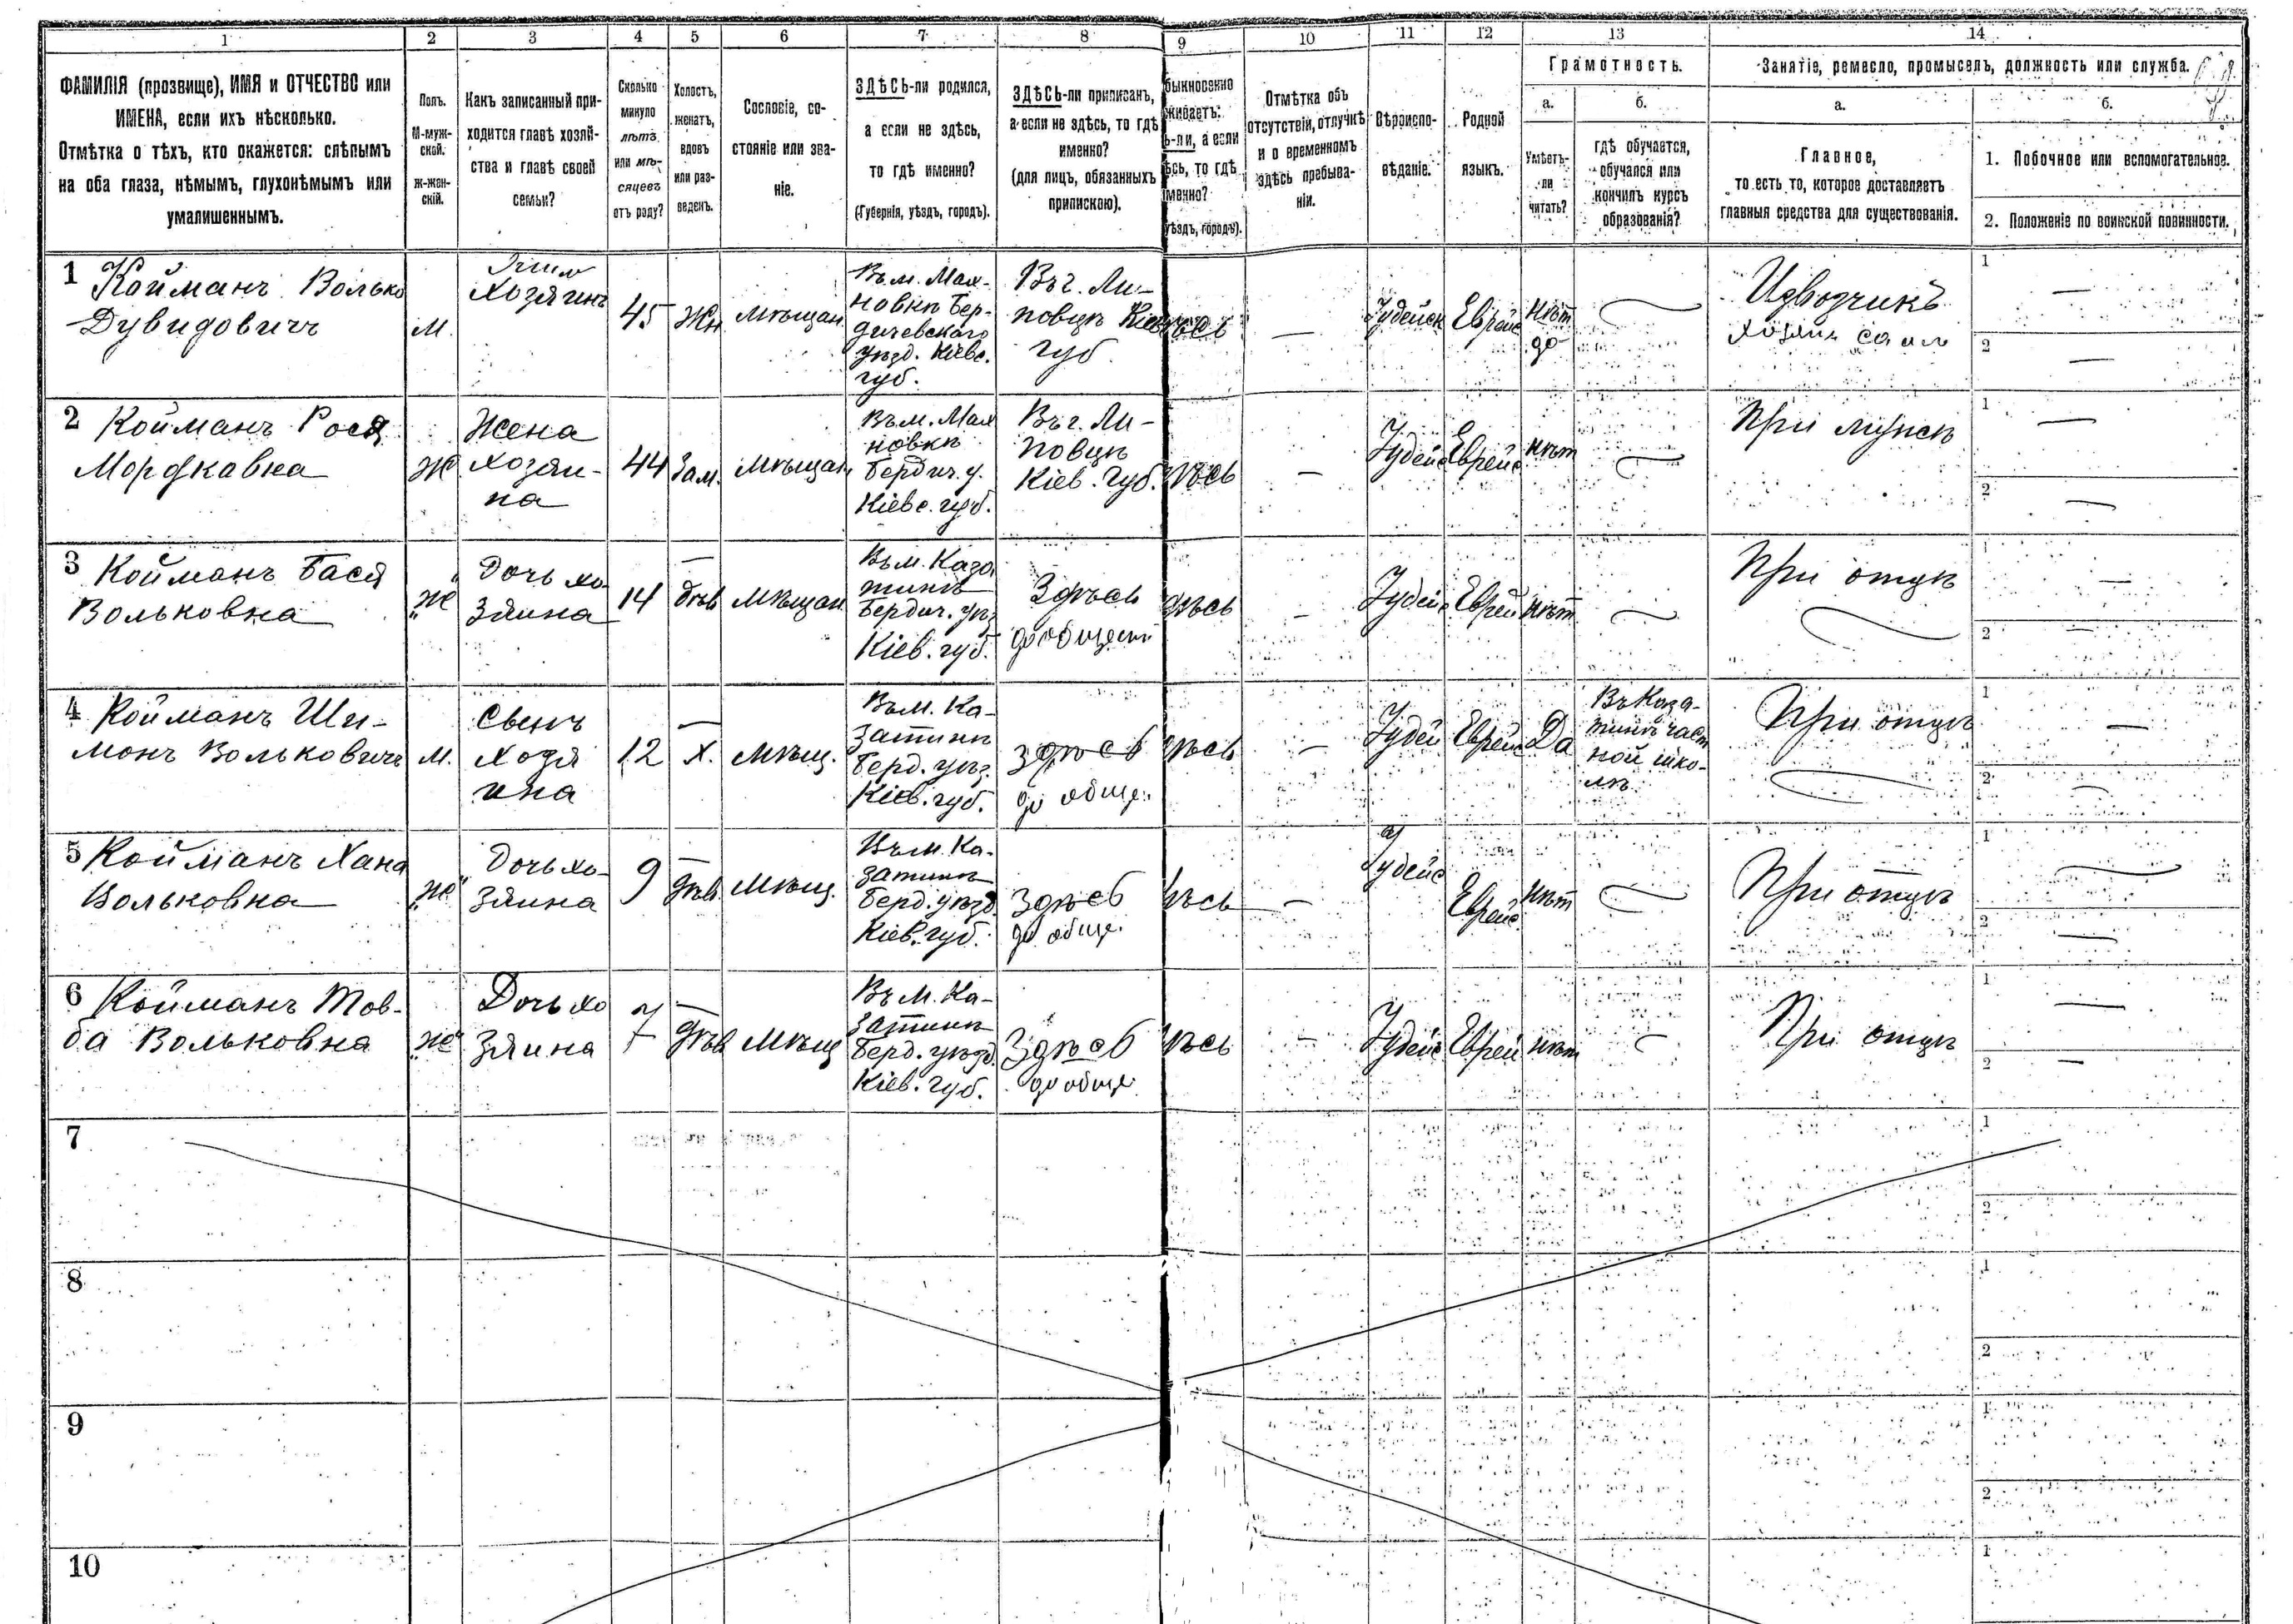 1 2 3 4 5 6 7 8 9 10 11 12 13 14
ФАМИЛІЯ (прозвище), ИМЯ и ОТЧЕСТВО или
ИМЕНА, если ихъ нѣсколько.
Отмѣтка о тѣхъ, кто окажется: слѣпымъ
на оба глаза, нѣмымъ, глухонѣмымъ или
умалишеннымъ.
Полъ.
М-муж-
ской.
Ж-жен-
скій.
Какъ записанный при-
ходится главѣ хозяй-
ства и главѣ своей
семьи?
Сколько
минуло
лѣтъ
или мѣ-
сяцевъ
отъ роду?
Холостъ,
женатъ,
вдовъ
или раз-
веденъ.
Сословіе, со-
стояніе или зва-
ніе.
ЗДѢСЬ-ли родился,
а если не здѣсь,
то гдѣ именно?
(Губернія, уѣздъ, городъ).
ЗДѢСЬ-ли приписанъ,
а если не здѣсь, то гдѣ
именно?
(для лицъ, обязанныхъ
припискою).
быкновенно
живаетъ:
ь-ли, а если
ѣсь, то гдѣ
менно?
уѣздъ, городъ).
Отмѣтка объ
отсутствіи, отлучкѣ
и о временномъ
здѣсь пребыва-
ніи.
Вѣроиспо-
вѣданіе.
Родной
языкъ.
Грамотность.
а.
Умѣетъ-
ли
читать?
б.
гдѣ обучается,
обучался или
кончилъ курсъ
образованія?
Занятіе, ремесло, промыселъ, должность или служба.
а.
Главное,
то есть то, которое доставляетъ
главныя средства для существованія.
б.
1. Побочное или вспомогательное.
2. Положеніе по воинской повинности.
1 Койманъ Волько
Дувидовичъ
М.
Хозяинъ
45
Жн
Мѣщан
Въ м. Мах-
новкѣ Бер-
дичевскаго
уѣзд. Кіевс.
губ.
Въ г. Ли-
повцѣ Кіев
губ
ѣсь
—
Іудейск
Еврейс
Нѣт
Извозчикъ
хозяин
1 —
2 —
2 Койманъ Рося
Мордкавна
Ж
Жена
хозяи-
на
44
Зам.
Мѣщан
Въ м. Мах
новкѣ
Бердич. у.
Кіевс. губ.
Въ г. Ли-
повцѣ
Кіев. губ.
ѣсь
—
Іудейс
Еврейс
нѣт
При мужѣ
1 —
2 —
3 Койманъ Бася
Вольковна
Ж
Дочь хо-
зяина
14
дѣв
Мѣщан
Въ м. Каза
тинѣ
Бердич. уѣз
Кіев. губ.
Здѣсь
до общест
дѣсь
—
Іудейс
Еврей
нѣт
При отцѣ
1 —
2 —
4 Койманъ Ши-
монъ Вольковичъ
М.
Сынъ
Хозя
ина
12
Х.
Мѣщ.
Въ м. Ка-
затинѣ
Берд. уѣз.
Кіев. губ.
здѣсь
до общ.
ѣсь
—
Іудей
Еврейс
Да
Въ Каза-
тинѣ част
ной шко-
лѣ
При отцѣ
1 —
2 —
5 Койманъ Хана
Вольковна
Ж
Дочь хо-
зяина
9
дѣв.
Мѣщ.
Въ м. Ка-
затинѣ
Берд. уѣзд.
Кіев. губ.
здѣсь
до обще.
ѣсь
—
Іудейс
Еврейс
нѣт
При отцѣ
1 —
2 —
6 Койманъ Тов-
ба Вольковна
Ж
Дочь хо
зяина
7
дѣв
Мѣщ
Въ м. Ка-
затинѣ
Берд. уѣзд.
Кіев. губ.
Здѣсь
до обще
ѣсь
—
Іудейс
Еврей
нѣт
При отцѣ
1 —
2 —
7
1
2
8
1
2
9
1
2
10
1